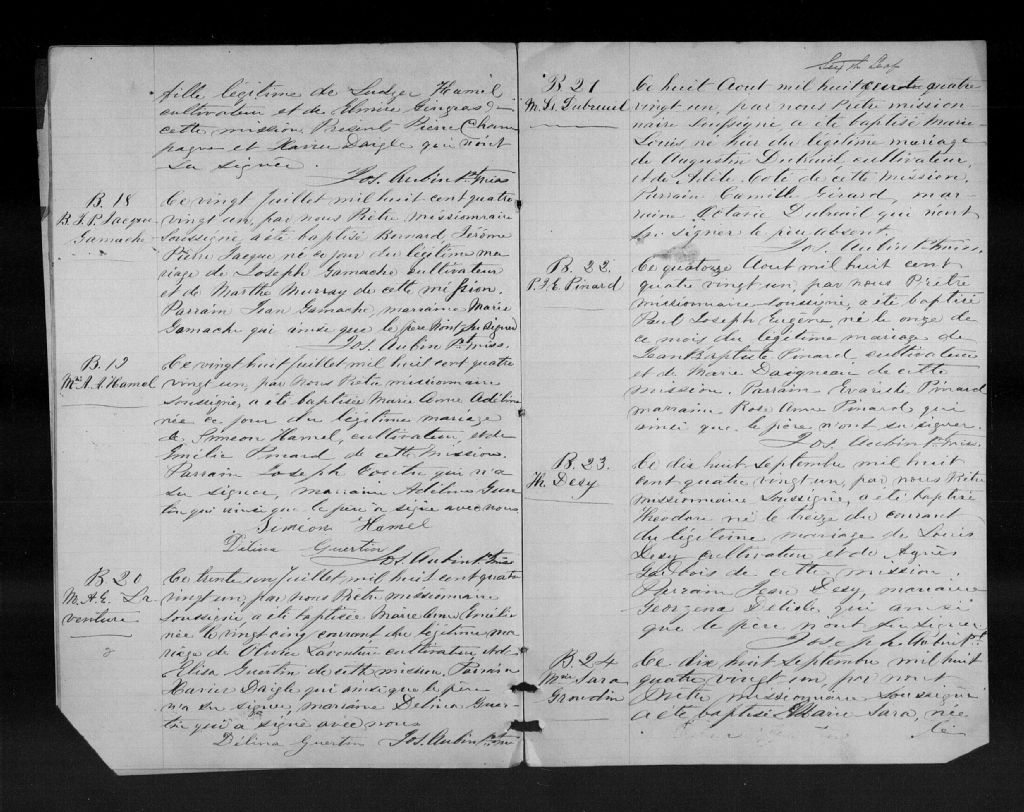 fille légitime de Ludger Hamel
cultivateur et de Elmire Gingras de
cette mission. Présent Pierre Cham
pagne et Xavier Daigle qui n'ont
su signer.
Jos. Aubin Ptre Miss
B. 18
B. J. P. Jacque
Gamache
Ce vingt Juillet mil huit cent quatre
vingt un, par nous Prêtre missionnaire
Soussigné, a été baptisé Bernard Jérôme
Pierre Jacque né ce jour du légitime ma
riage de Joseph Gamache cultivateur
et de Marthe Murray de cette mission.
Parrain Jean Gamache, marraine Marie
Gamache qui ainsi que le père n'ont su signer
Jos. Aubin Pt miss.
B. 19
Me A. A. Hamel
Ce vingt huit Juillet mil huit cent quatre
vingt un, par nous Prêtre missionnaire
Soussigné, a été baptisée Marie Anne Adeline
née ce jour du légitime mariage
de Siméon Hamel, cultivateur, et de
Emélie Pinard de cette mission.
Parrain Joseph qui n'a
su signer, marraine Adelina Guer
tin qui ainsi que le père a signé avec nous
Simeon Hamel
Délina Guertin
Jos. Aubin Pt miss
B 20
M. A. E. La
venture
Ce trente un Juillet mil huit cent quatre
vingt un, par nous Prêtre missionnaire
Soussigné, a été baptisée Marie Anne Emélie
née le vingt cinq courant du légitime ma
riage de Olivier Laventure cultivateur et de
Elisa Guertin de cette mission. Parrain
Xavier Daigle qui ainsi que le père
n'a su signer, marraine Delina Guer
tin qui a signé avec nous
Délina Guertin Jos. Aubin Pt m
B 21
M. L. Dubreuil
Ce huit Aout mil huit cent quatre
vingt un, par nous Prêtre mission
naire Soussigné, a été baptisé Marie
Louis né hier du légitime mariage
de Augustin Dubreuil cultivateur,
et de Adèle Coté de cette mission.
Parrain Camille Girard, mar
raine Octavie Dubreuil qui n'ont
su signer le père absent.
Jos. Aubin Pt miss.
B. 22.
P. J. E. Pinard
Ce quatorze Aout mil huit cent
quatre vingt un, par nous Prêtre
missionnaire Soussigné, a été baptisé
Paul Joseph Eugène, né le onze de
ce mois du légitime mariage de
Jean Baptiste Pinard cultivateur
et de Marie Daigneau de cette
mission. Parrain Evariste Pinard
marraine Rose Anna Pinard qui
ainsi que le père n'ont su signer.
Jos. Aubin Pt miss.
B. 23.
Th. Desy
Ce dix huit Septembre mil huit
cent quatre vingt un, par nous Prêtre
missionnaire Soussigné, a été baptisé
Théodore né le treize du courant
du légitime mariage de Louis
Desy cultivateur et de Agnès
Gadbois de cette mission.
Parrain Jean Desy, marraine
Georgena Delisle qui ainsi
que le père n'ont su signer
Joseph Aubin Pt
B. 24
Mie Sara
Grondin
Ce dix huit Septembre mil huit
quatre vingt un, par nous
Prêtre missionnaire Soussigné
a été baptisé Marie Sara, née
le